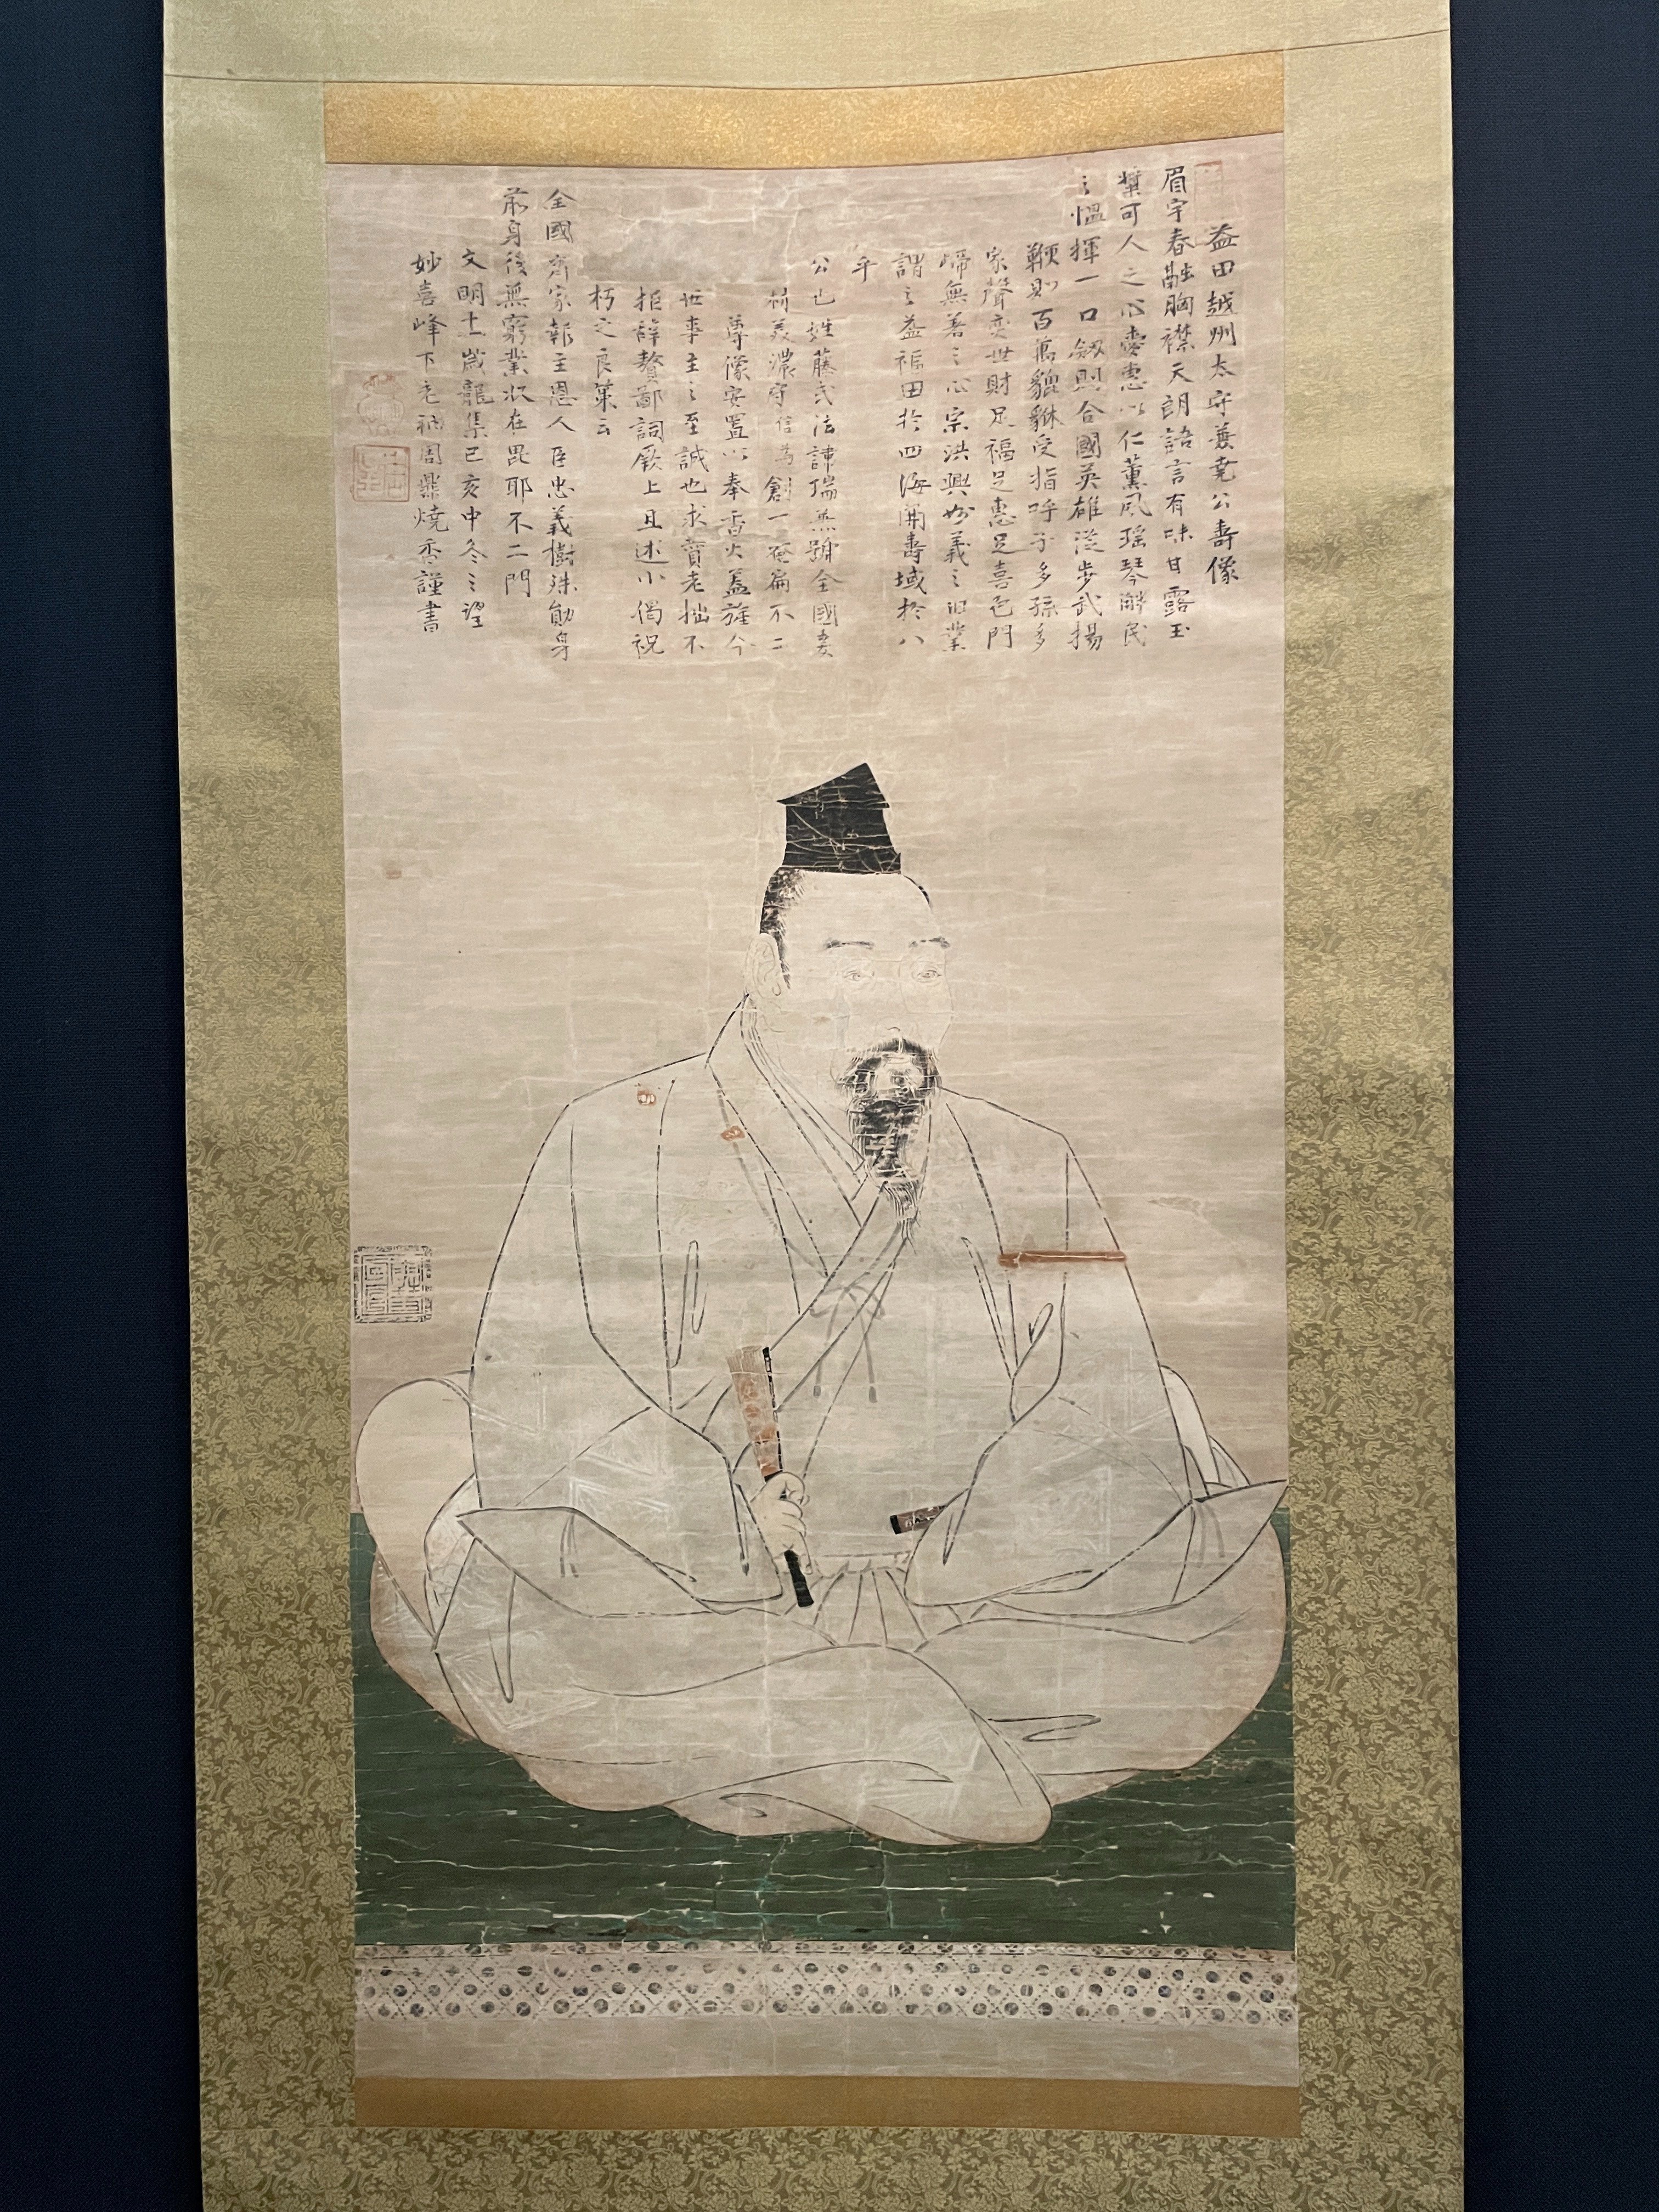 益田越州太守兼堯公寿像
眉宇春融胸襟天朗語言有味甘露玉
漿可人之心霑恵以仁薫風瑶琴解民
之慍揮一口劔則合國英雄従歩武揚
鞭則百萬貔貅受指呼子多孫多
家聲奕世財足福足恵足喜色門
無善之心宗洪興妙義之旧業
謂之益福田於四海開壽域於八
乎
公也姓藤氏法諱瑞無號全國妾
前美濃守信為創一菴扁不二
尊像安置以奉香火蓋旌今
世事主之至誠也求賛老拙不
拒辞贅鄙詞厥上且述小偈祝
朽之良策云
全國齊家報主恩人臣忠義樹殊勛身
前身後無窮業状在毘耶不二門
文明十一歳龍集己亥中冬之望
妙喜峰下老衲周鼎焼香謹書